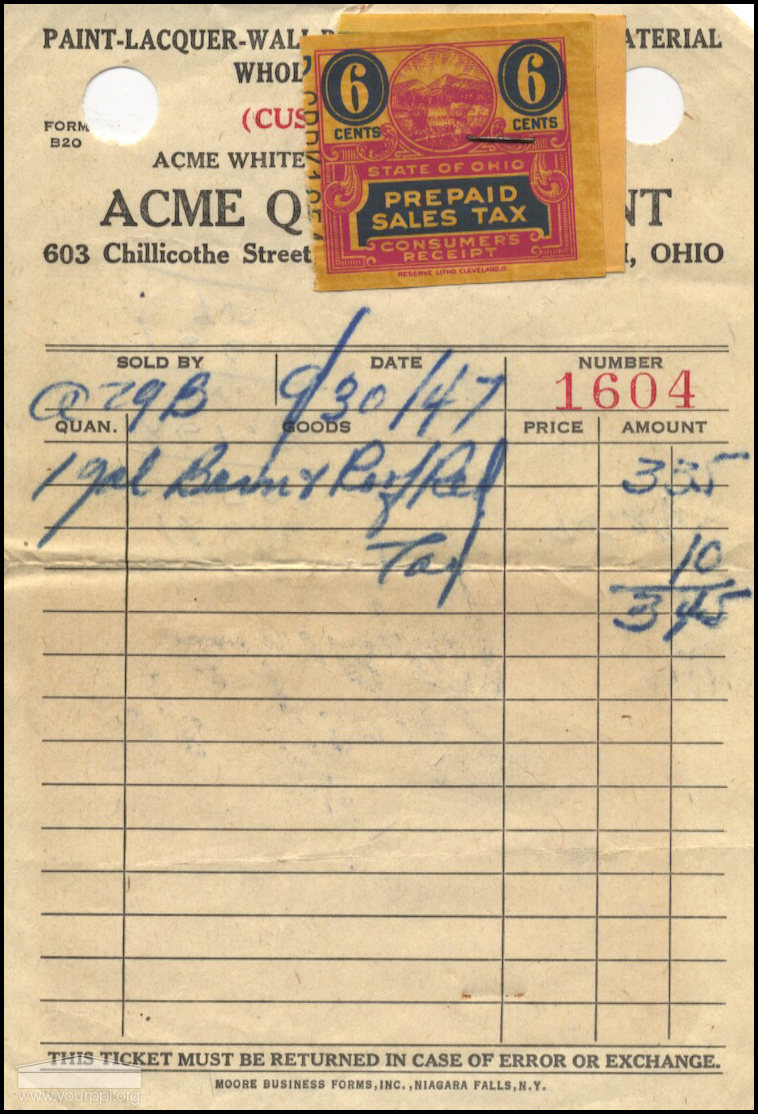 PAINT-LACQUER-WALL ATERIAL
WHOL
(CUS
FORM
B20
ACME WHITE
ACME Q NT
603 Chillicothe Street , OHIO
6 6
CENTS CENTS
STATE OF OHIO
PREPAID
SALES TAX
CONSUMER'S
RECEIPT
RESERVE LITHO. CLEVELAND.O.
SOLD BY DATE NUMBER
@ 79B 9/30/47 1604
QUAN. GOODS PRICE AMOUNT
1 gal Red 335
Tax 10
345
THIS TICKET MUST BE RETURNED IN CASE OF ERROR OR EXCHANGE.
MOORE BUSINESS FORMS, INC., NIAGARA FALLS, N.Y.
www.yourppl.org